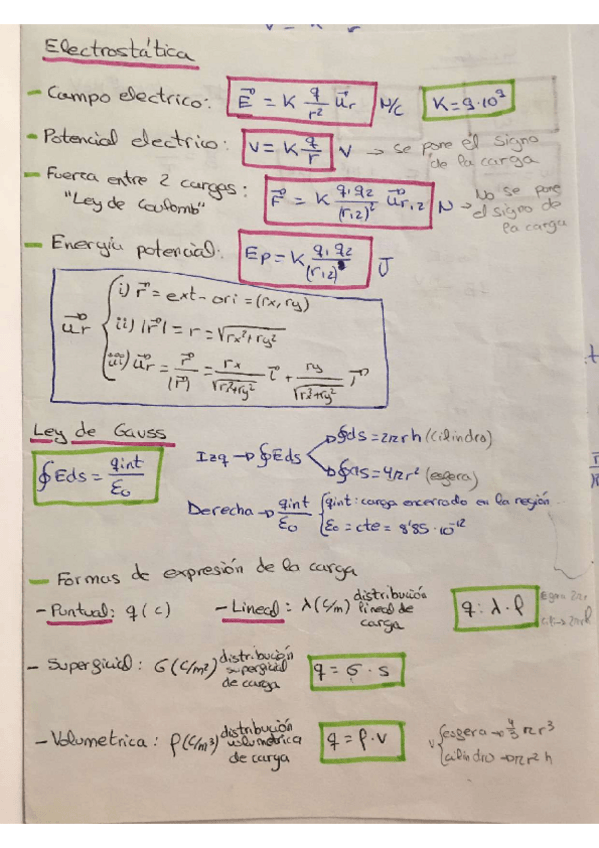 Electrostática
- Campo electrico: E⃗ = K q/r² u⃗r N/C K = 9·10⁹
- Potencial electrico: V = K q/r V → se pone el signo de la carga
- Fuerza entre 2 cargas: "Ley de Coulomb" F⃗ = K q₁q₂/(r₁₂)² u⃗r₁₂ N → No se pone el signo de la carga
- Energía potencial: Ep = K q₁q₂/(r₁₂) J
u⃗r
i) r⃗ = ext - ori = (rx, ry)
ii) |r⃗| = r = √rx²+ry²
iii) u⃗r = r⃗/|r⃗| = rx/√rx²+ry² i⃗ + ry/√rx²+ry² j⃗
Ley de Gauss
∮Eds = qint/ε₀
Izq → ∮Eds
∮ds = 2πrh (cilindro)
∮ds = 4πr² (esfera)
Derecha → qint/ε₀
qint: carga encerrado en la región
ε₀ = cte = 8'85·10⁻¹²
- Formas de expresión de la carga
- Puntual: q (c) - Lineal: λ(c/m) distribución lineal de carga q: λ·l
- Superficial: σ(c/m²) distribución superficial de carga q = σ·s
- Volumetrica: ρ(c/m³) distribución volumetrica de carga q = ρ·v
v esfera → 4/3 πr³
cilindro → πr²h